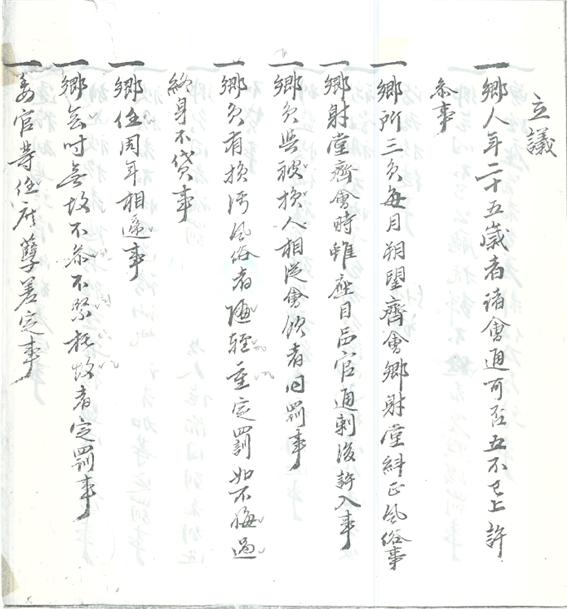 立議
一鄕人年二十五歲者諸會通可否五不已上許
參事
一鄕所三員每月朔望齊會鄕射堂糾正風俗事
一鄕射堂齊會時雖座目品官通刺後許入事
一鄕員與被損人相從會飮者同罰事
一鄕員有損汚風俗者隨輕重定罰如不悔過
終身不貸事
一鄕任周年相遞事
一鄕會時無故不參不緊托故者定罰事
一官等任庶孼差定事